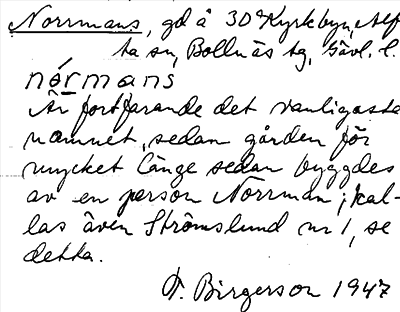 Norrmans, gd å 30 Kyrkbyn, Alf
ta sn, Bollnäs tg, Gävl. l.
nórmans
Är fortfarande det vanligaste
namnet, sedan gården för
mycket länge sedan byggdes
av en person Norrman; kal-
las även Strömslund nr 1, se
detta.
F. Birgerson 1947